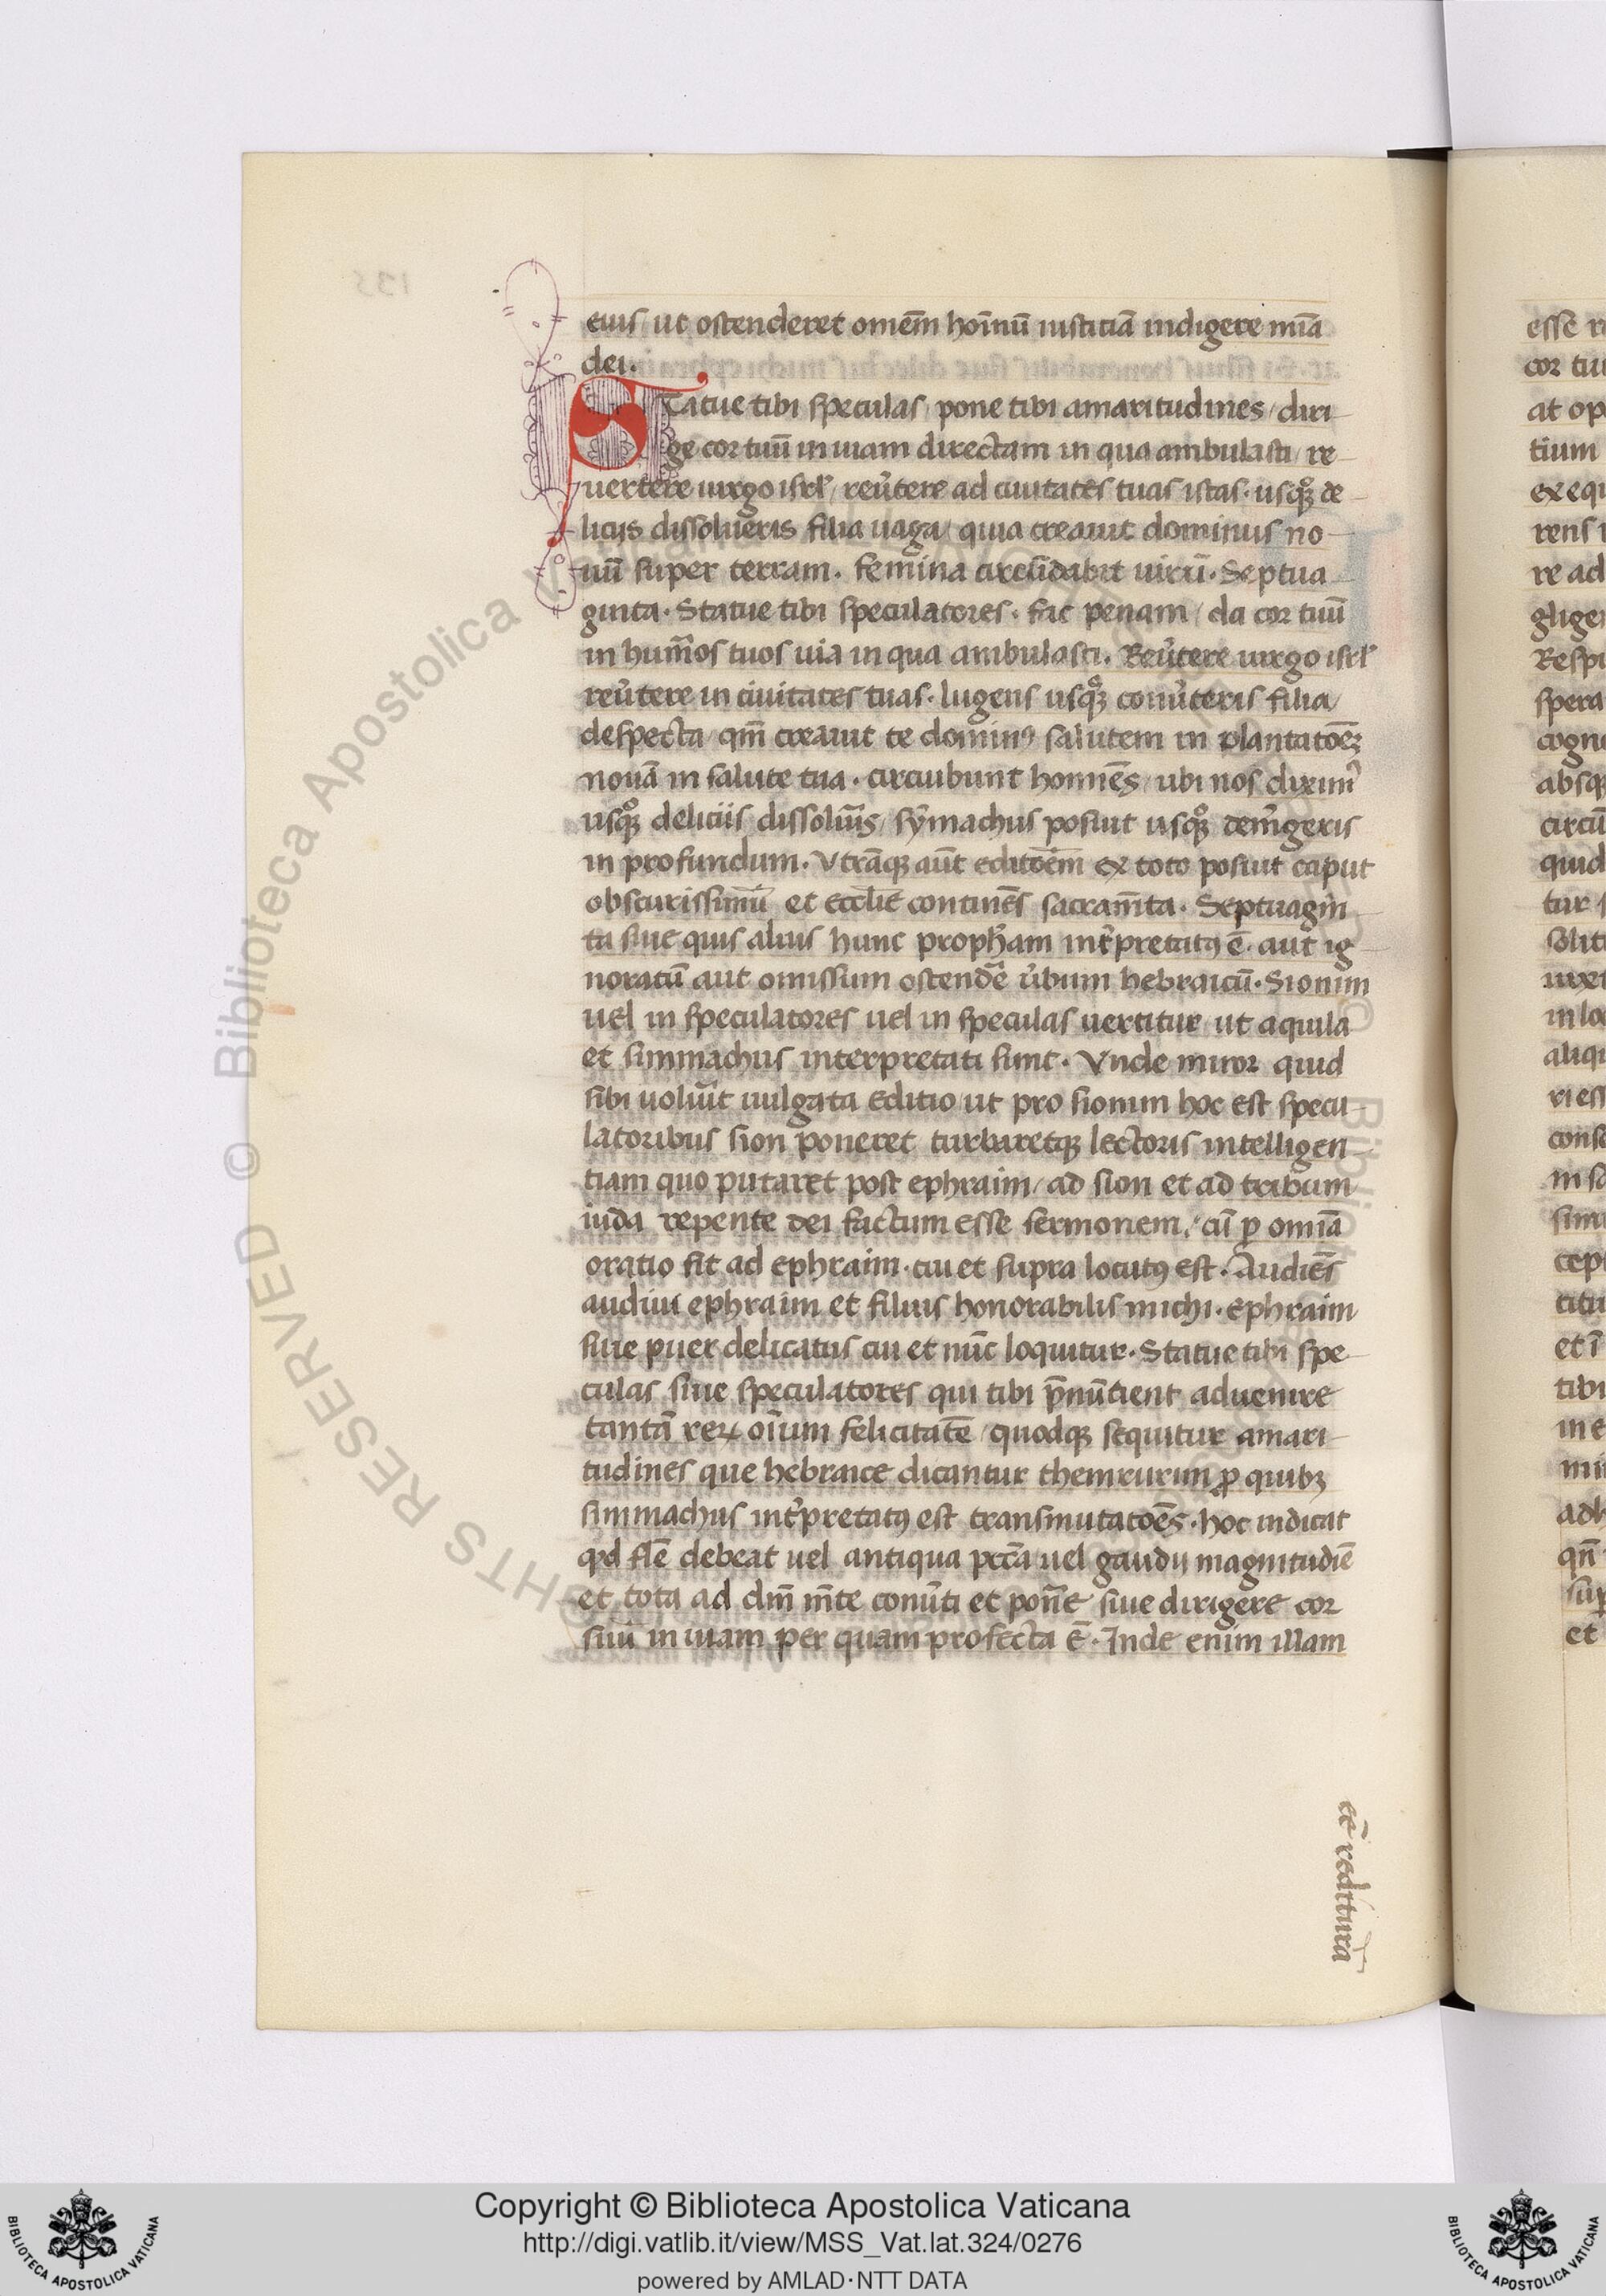 eius / ut ostenderet omem̄ hoīnū iusticiā indigere mīa
dei.
STatue tibi speculas / pone tibi amaritudines / diri-
ge cor tuū in uiam directam in qua ambulasti / re-
uertere uirgo isrl̄ / reu̓tere ad ciuitates tuas istas · usqꝫ de-
licijs dissolueris filia uaga / quia creauit dominus no-
uū super terram · femina circūdabit uirū · Septua-
ginta · Statue tibi speculatores · fac penam / da cor tuū
in hum̄os tuos uia in qua ambulasti. Reu̓tere uirgo isrl̄
reu̓tere in ciuitates tuas · lugens usqꝫ conu̓teris filia /
despecta / qm̄ creauit te dominꝰ salutem in plantatōeꝫ
nouā in salute tua · circuibunt homēs / ubi nos diximꝰ
usqꝫ deliciis dissolu̓is / symachus posuit usqꝫ dem̓geris
in profundum. Vtrāqꝫ aūt editōem ex toto posuit caput
obscurissimū et eccl̄ie continēs sacram̄ta · Septuagin-
ta siue quis alius hunc proph̄am int̓pretatꝰ ē · aut ig-
noratū aut omissum ostendē u̓bum hebraicū · Sionim
uel in speculatores uel in speculas uertitur / ut aquila
et simmachus interpretati sunt. Vnde miror quid
sibi uolu̓it uulgata editio / ut pro sionim hoc est specu-
latoribus sion poneret turbaretqꝫ lectoris intelligen-
tiam quo putaret post ephraim / ad sion et ad tribum
iuda repente dei factum esse sermonem, cū ꝑ omīa
oratio fit ad ephraim · cui et supra locutꝰ est. Audiēs
audiui ephraim et filius honorabilis michi · ephraim
siue puer delicatus cui et nūc loquitur. Statue tibi spe-
culas siue speculatores qui tibi p̄nūtient aduenire
tantā reꝝ oīum felicitatē / quodqꝫ sequitur amari-
tudines que hebraice dicantur themrurim ꝓ quibꝫ
simmachus int̓pretatꝰ est transmutatōes · hoc indicat
qd flē debeat uel antiqua pcc̄a uel gaudij magnitudiē
et tota ad dm̄ m̄te conu̓ti et pon̄e siue dirigere cor
suū in uiam per quam profecta ē. Inde enim illam
eē reditura